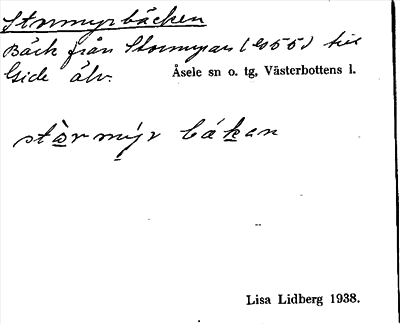 Stormyrbäcken
Bäck från Stormyran (Es55) till
Gide älv.
Åsele sn o. tg, Västerbottens l.
stòrmýr bákan
Lisa Lidberg 1938.